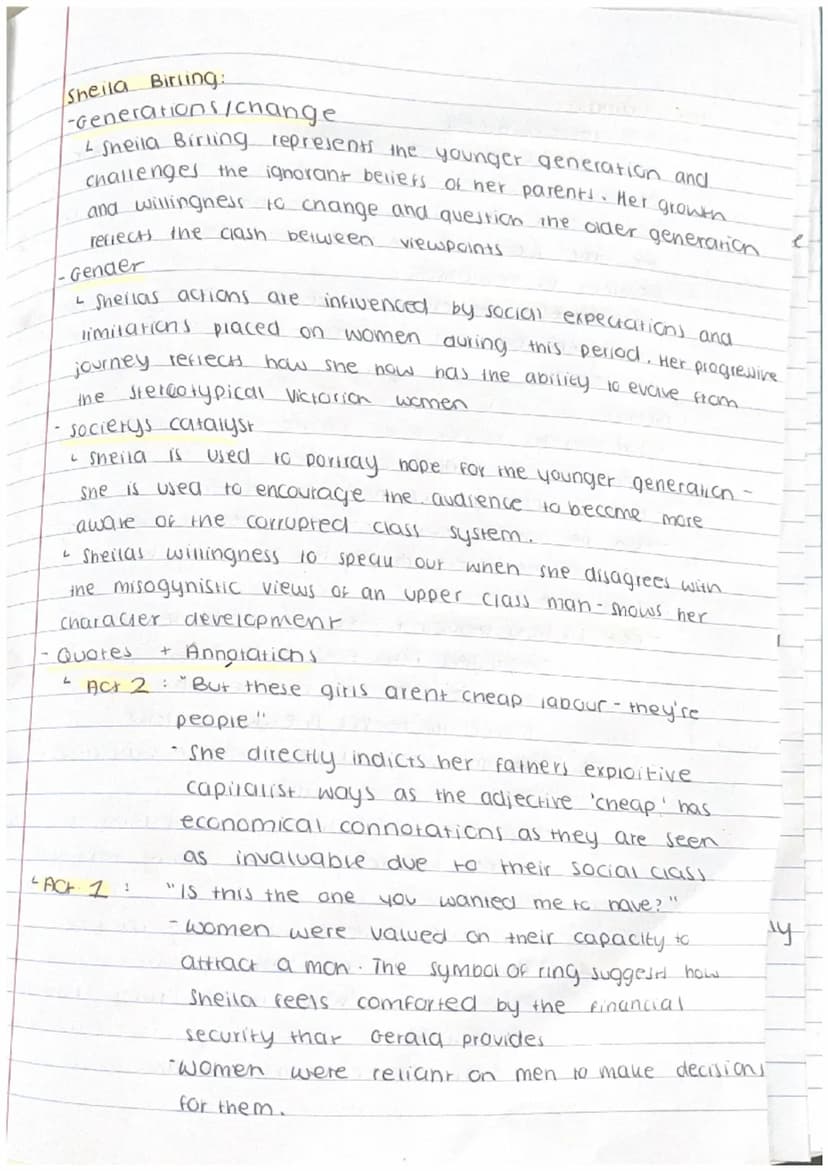 Sheila Birling:
-Generations/change
↳ Sheila Birling represents the younger generation and
challenges the ignorant beliefs of her parents. Her growth
and willingness to change and question the older generation
reflects the clash between viewpoints
- Gender
↳ Sheilas actions are influenced by social expectations and
limitations placed on women during this period. Her progressive
journey reflects how she now has the ability to evolve from
the stereotypical Victorian women
- societys catalyst
↳ Sheila is used to portray hope for the younger generation -
she is used to encourage the audience to become more
aware of the corrupted class system.
↳ Sheilas willingness to speak out when she disagrees with
the misogynistic views of an upper class man - shows her
character development
- Quotes + Annotations
↳ Act 2 : "But these girls arent cheap labour - they're
people"
- She directly indicts her fathers exploitive
capitalist ways as the adjective 'cheap' has
economical connotations as they are seen
as invaluable due to their social class
↳ Act 1 : "Is this the one you wanted me to have?"
- Women were valued on their capacity to
attract a man. The symbol of ring suggests how
Sheila feels comforted by the financial
security that Gerald provides
- Women were reliant on men to make decisions
for them.